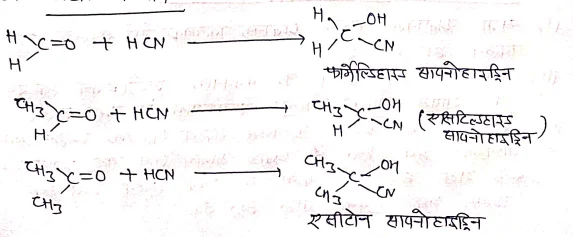 H H C=O + HCN → H H C OH CN
फार्मेल्डिहाइड सायनोहाइड्रिन
CH3 H C=O + HCN → CH3 H C OH CN (एसिटिल्डहाइड सायनोहाइड्रिन)
CH3 CH3 C=O + HCN → CH3 CH3 C OH CN
एसीटोन सायनोहाइड्रिन